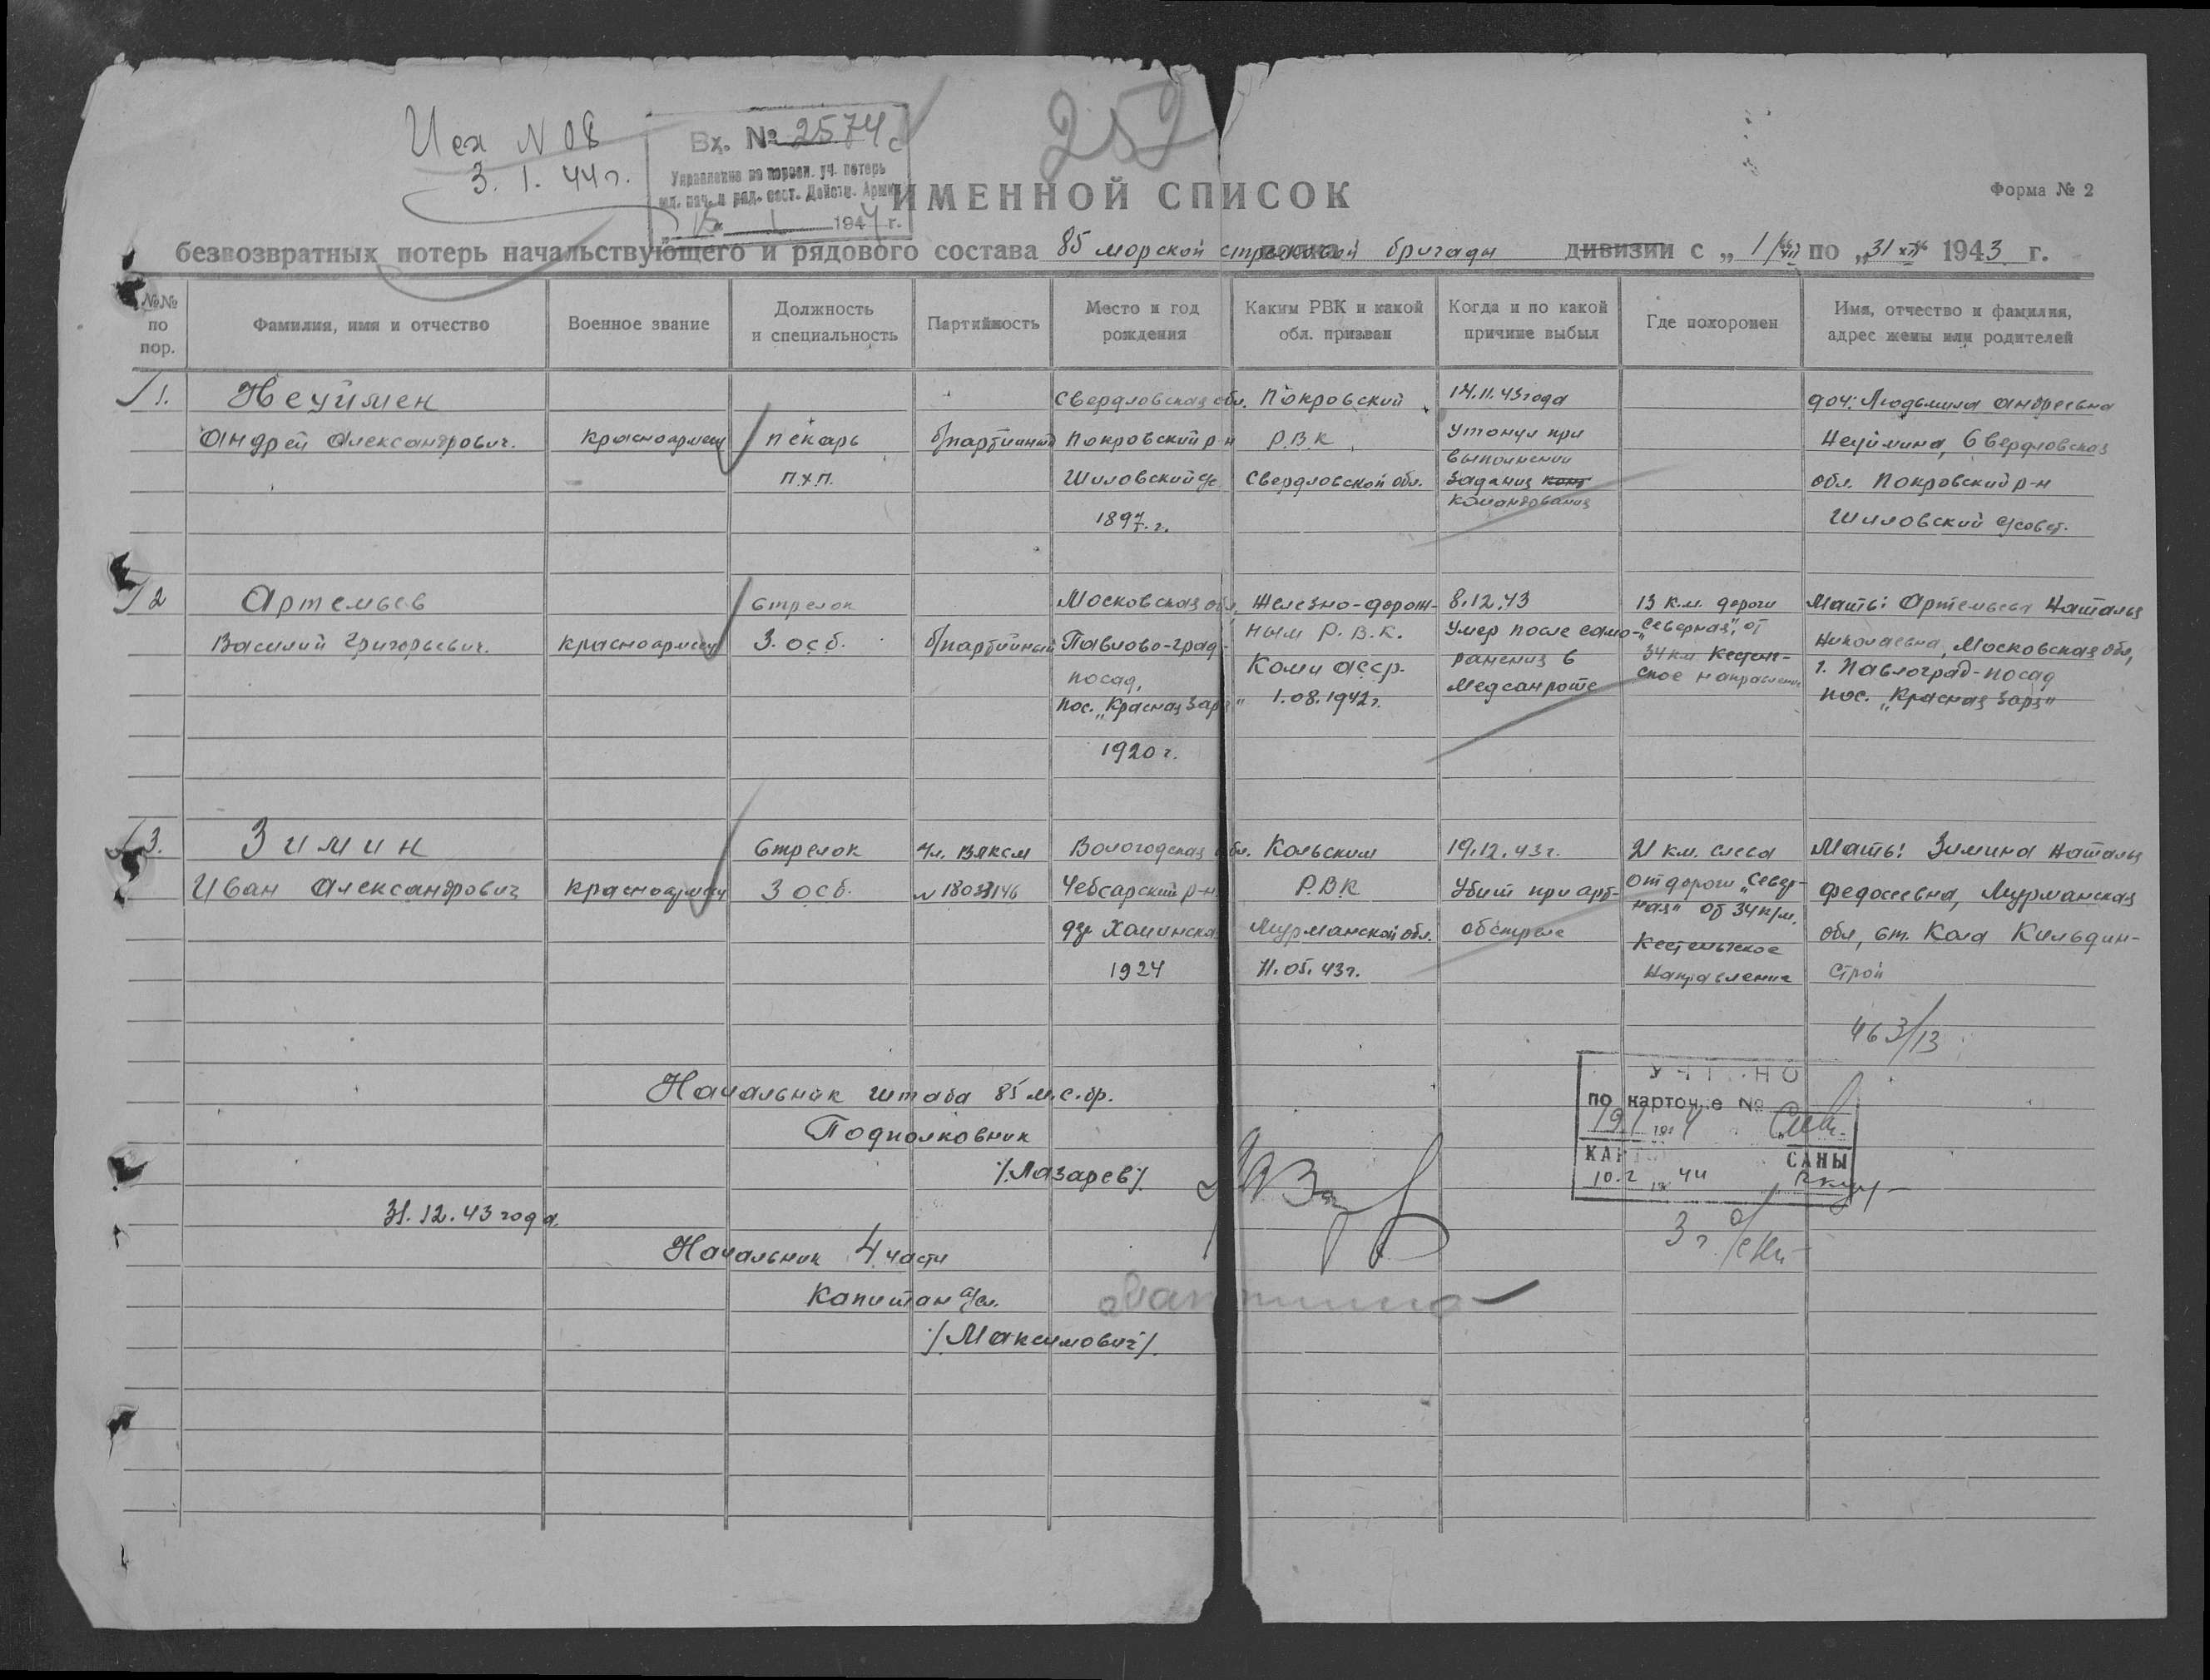 Исх N 08
3.1.44г.
Вх. № 2574с
Управление по персон. уч. потерь
мл. нач. и ряд. сост. Действ. Армии
194 4 г.
252
ИМЕННОЙ СПИСОК
Форма № 2
безвозвратных потерь начальствующего и рядового состава 85 морской стрелковой бригады дивизии с „1/XII по „31 XII" 1943 г.
№№ по пор.
Фамилия, имя и отчество
Военное звание
Должность и специальность
Партийность
Место и год рождения
Каким РВК и какой обл. призван
Когда и по какой причине выбыл
Где похоронен
Имя, отчество и фамилия, адрес жены или родителей
1.
Неуймен
Андрей Александрович.
красноармеец
пекарь
п.х.п.
б/партийный
Свердловская обл.
Покровский р-н
Шиловский с/с
1897 г.
Покровский
Р.В.К.
Свердловской обл.
14.11.43 года
Утонул при
выполнении
задания конт
командования
доч: Людьмила Андреевна
Неуймина, Свердловская
обл. Покровский р-н
Шиловский с/совет.
2
Артемьев
Василий Григорьевич.
красноармеец
Стрелок
3. осб.
б/партийный
Московская обл,
Павлово-град-
посад,
пос. „Красная Заря"
1920 г.
Железно-дорож-
ным Р.В.К.
Коми асср.
1.08.1942 г.
8.12.43
Умер после само-
ранения в
Медсанроте
13 к.м. дороги
„Северная", от
34 км Кестень-
ское направление
Мать: Артемьева Наталья
Николаевна, Московская обл,
г. Павлоград-посад
пос. „Красная Заря"
3.
Зимин
Иван Александрович
красноармеец
Стрелок
3 осб.
Чл. ВЛКСМ
Вологодская обл.
Чебсарский р-н
1924
Кольским
Р.В.К
Мурманской обл.
11.05.43г.
19.12.43г.
Убит при арт-
обстреле
21 км. слева
от дороги „Север-
ная" от 34 к/м.
Кестеньгское
Направление
Мать: Зимина Наталья
Федосеевна, Мурманская
обл, ст. Кола Кильдин-
строй
463/13
Начальник штаба 85 м.с.бр.
Подполковник
/Лазарев/.
31.12.43 года.
Начальник 4 части
Капитан а/сл.
/Максимович/.
УЧТЕНО
по карточке №
10.2 44